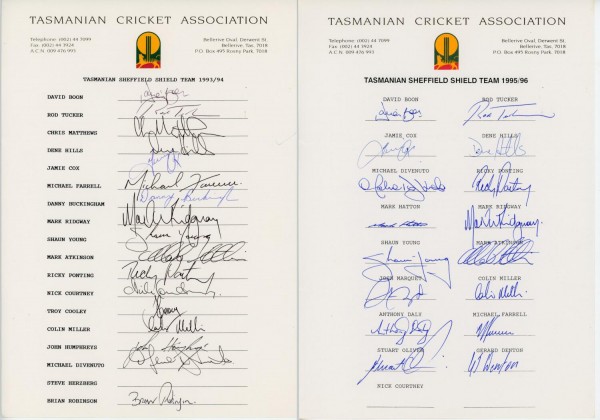 TASMANIAN CRICKET ASSOCIATION
Telephone: (002) 44 7099
Fax: (002) 44 3924
A.C.N. 009 476 993
Bellerive Oval, Derwent St.
Bellerive, Tas. 7018
P.O. Box 495 Rosny Park, 7018
TASMANIAN SHEFFIELD SHIELD TEAM 1993/94
DAVID BOON
ROD TUCKER
CHRIS MATTHEWS
DENE HILLS
JAMIE COX
MICHAEL FARRELL
DANNY BUCKINGHAM
MARK RIDGWAY
SHAUN YOUNG
MARK ATKINSON
RICKY PONTING
NICK COURTNEY
TROY COOLEY
COLIN MILLER
JOHN HUMPHREYS
MICHAEL DIVENUTO
STEVE HERZBERG
BRIAN ROBINSON
TASMANIAN CRICKET ASSOCIATION
Telephone: (002) 44 7099
Fax: (002) 44 3924
A.C.N. 009 476 993
Bellerive Oval, Derwent St.
Bellerive, Tas. 7018
P.O. Box 495 Rosny Park, 7018
TASMANIAN SHEFFIELD SHIELD TEAM 1995/96
DAVID BOON ROD TUCKER
JAMIE COX DENE HILLS
MICHAEL DIVENUTO RICKY PONTING
MARK HATTON MARK RIDGWAY
SHAUN YOUNG MARK ATKINSON
JOSH MARQUET COLIN MILLER
ANTHONY DALY MICHAEL FARRELL
STUART OLIVER GERARD DENTON
NICK COURTNEY